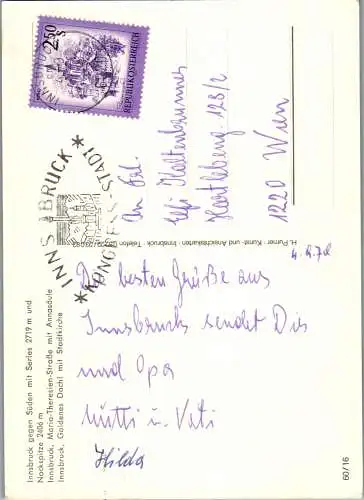 Innsbruck gegen Süden mit Serles 2719 m und
Nockspitze 2406 m
Innsbruck, Maria-Theresien-Straße mit Annasäule
Innsbruck, Goldenes Dachl mit Stadtkirche
Die besten Grüße aus
Innsbruck sendet Dir
und Opa
Mutti u. Vati
Hilda
INNSBRUCK
KONGRESS-STADT
2.50
S
REPUBLIK ÖSTERREICH
An Frl.
Kaltenbrunner
128/2
1220 Wien
Kunst- und Ansichtskarten · Innsbruck · Telefon
60/16